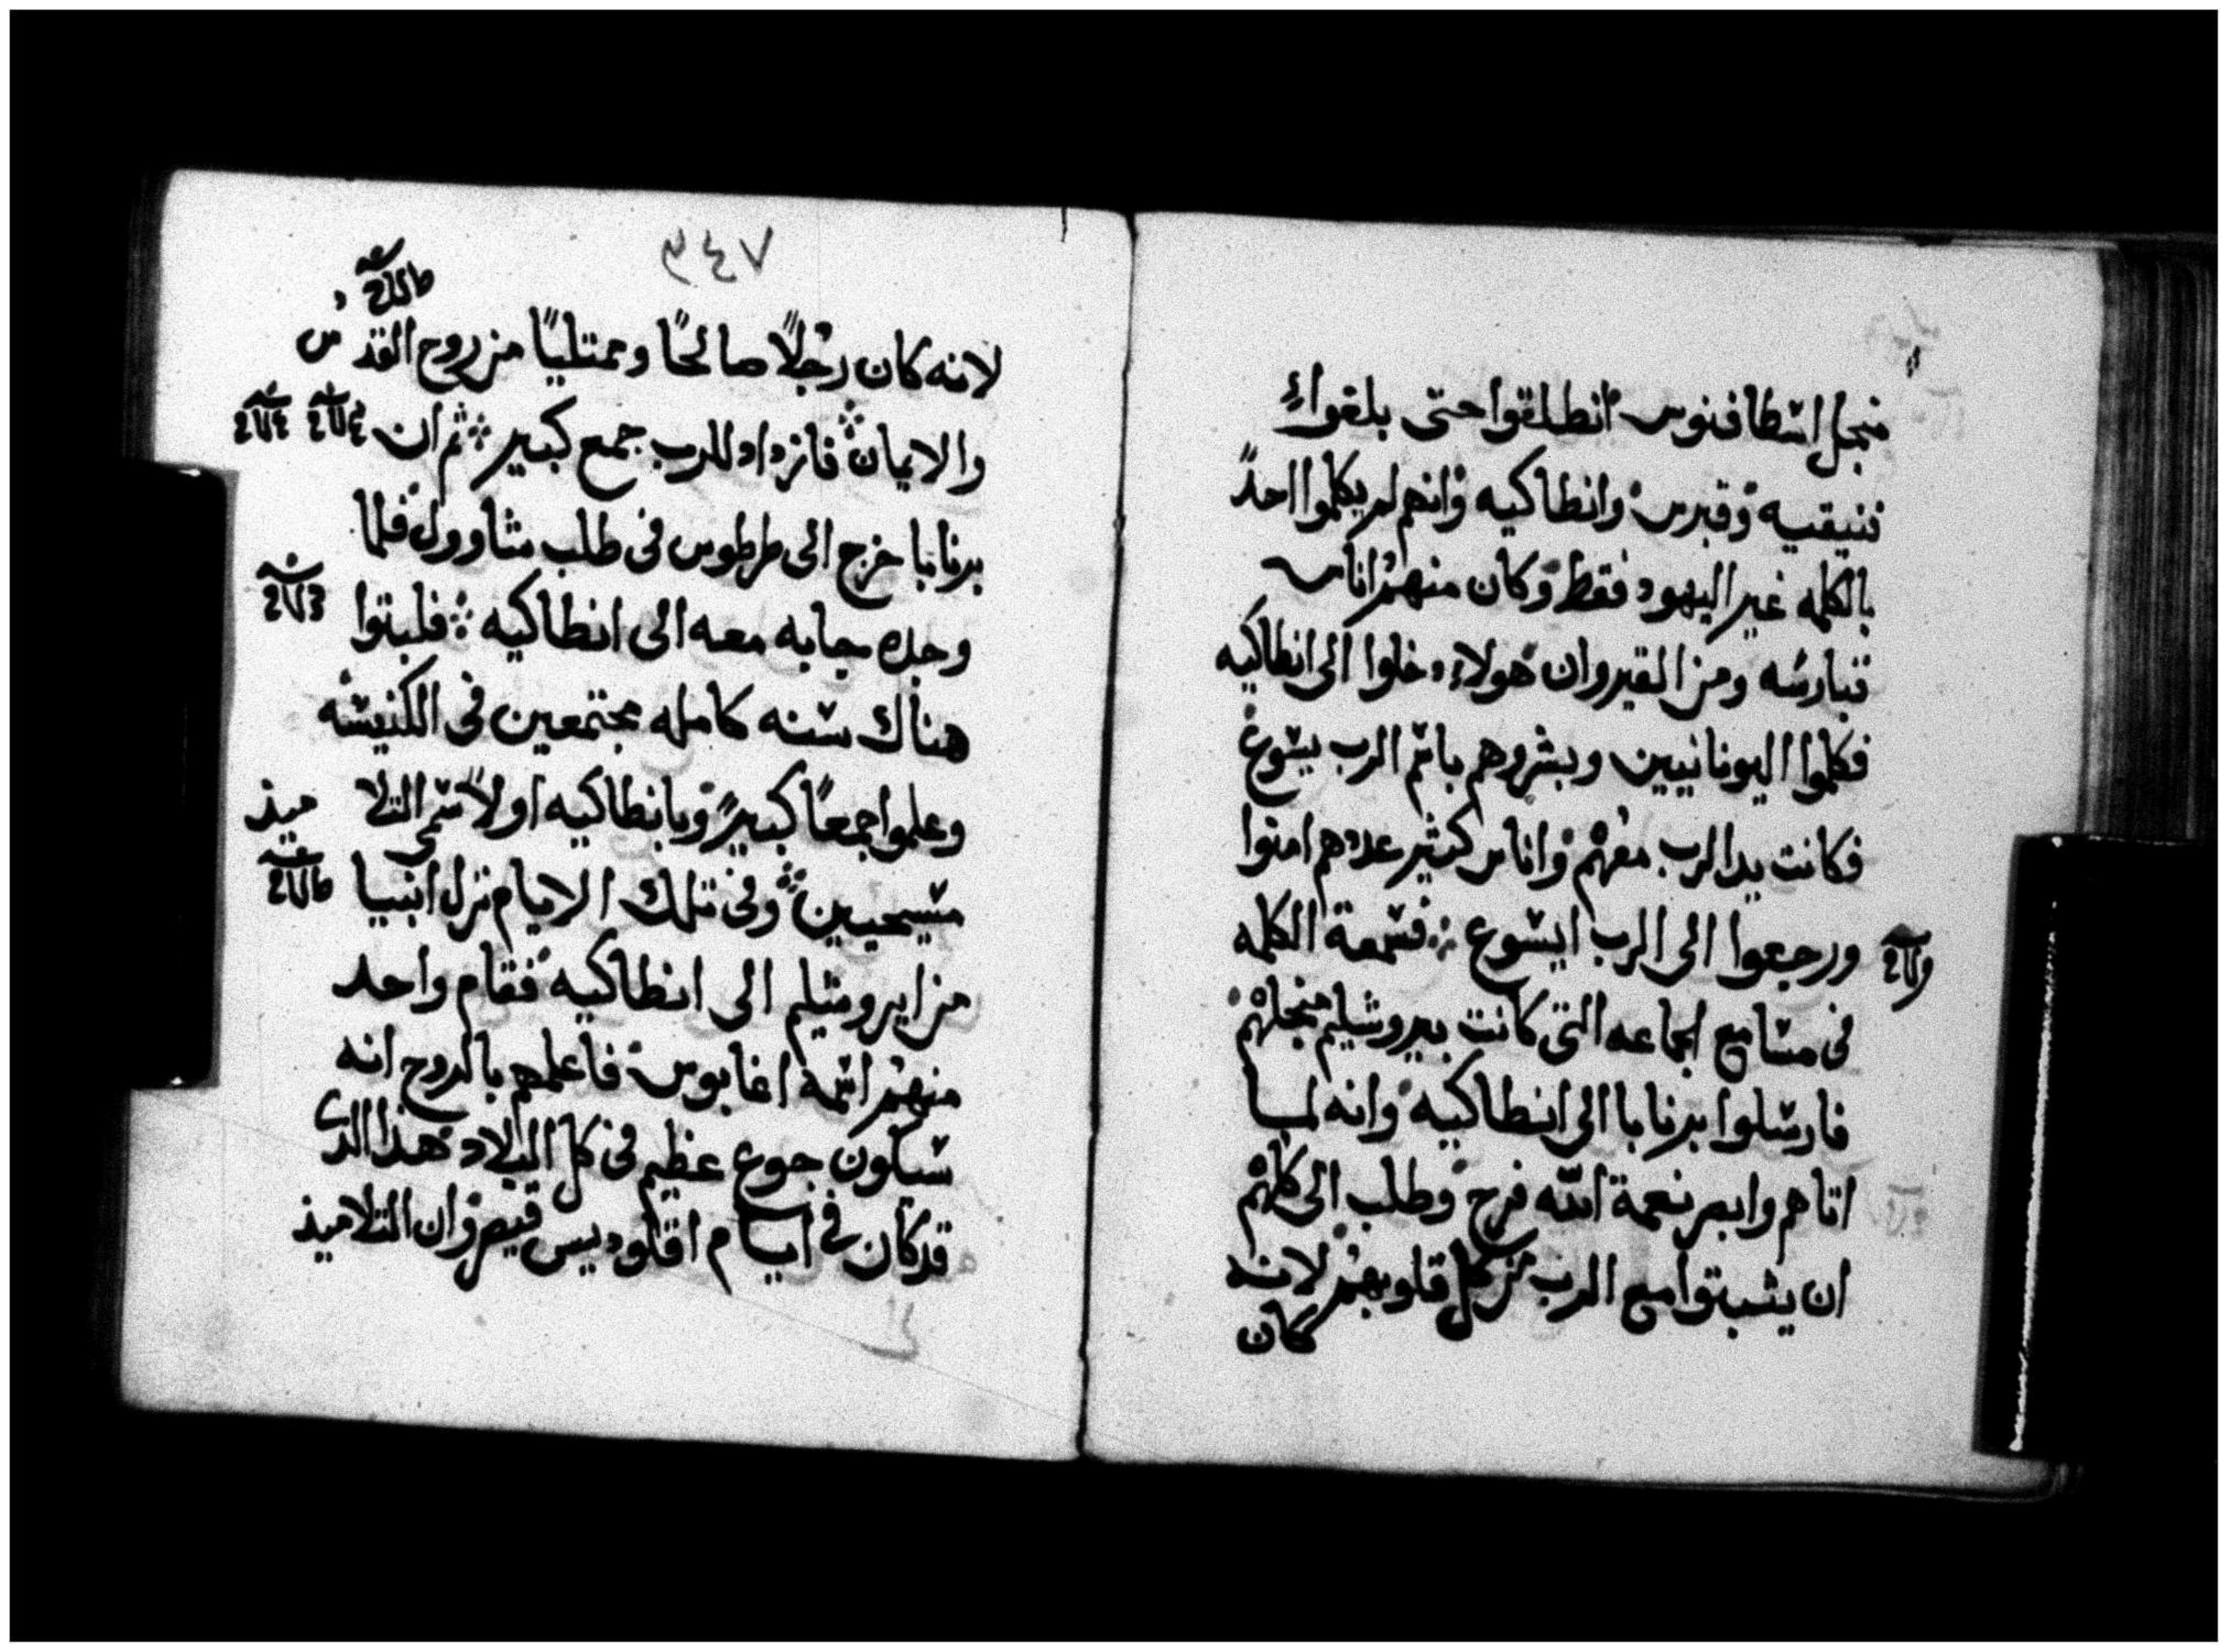 منجل اسطافنوس انطلقوا حتى بلغوا الى
فنيقيه وقبرس وانطاكيه وانهم لم يكلموا احدًا
بالكلمه غير اليهود فقط وكان منهم اناس
قبارسه ومن القيروان هولاء دخلوا الى انطاكيه
فكلموا اليونانيين وبشروهم باسم الرب يسوع
فكانت يد الرب معهم واناس كثير عددهم امنوا
ورجعوا الى الرب ايسوع فسمعة الكلمه
فى مسامع الجماعه التى كانت بيروشليم منجلهم
فارسلوا برنابا الى انطاكيه وانه لما
اتاهم وابصر نعمة الله فرح وطلب الى كلهم
ان يثبتوا مع الرب من كل قلوبهم لانه
كان
٣٤٧
لانه كان رجلًا صالحًا وممتليًا من روح القدس
والايمان فازداد للرب جمع كبير ثم ان
برنابا خرج الى طرطوس فى طلب شاوول فلما
وجده جابه معه الى انطاكيه فلبتوا
هناك سنه كامله مجتمعين فى الكنيسه
وعلموا جمعًا كبيرً وبانطاكيه اولًا سمى التلاميذ
مسيحيين وفى تلك الايام نزل انبيا
من ايروشليم الى انطاكيه فقام واحد
منهم اسمه اغابوس فاعلمهم بالروح انه
سيكون جوع عظيم فى كل البلاد هذا الدى
قد كان فى ايام اقلوديس قيصر وان التلاميذ